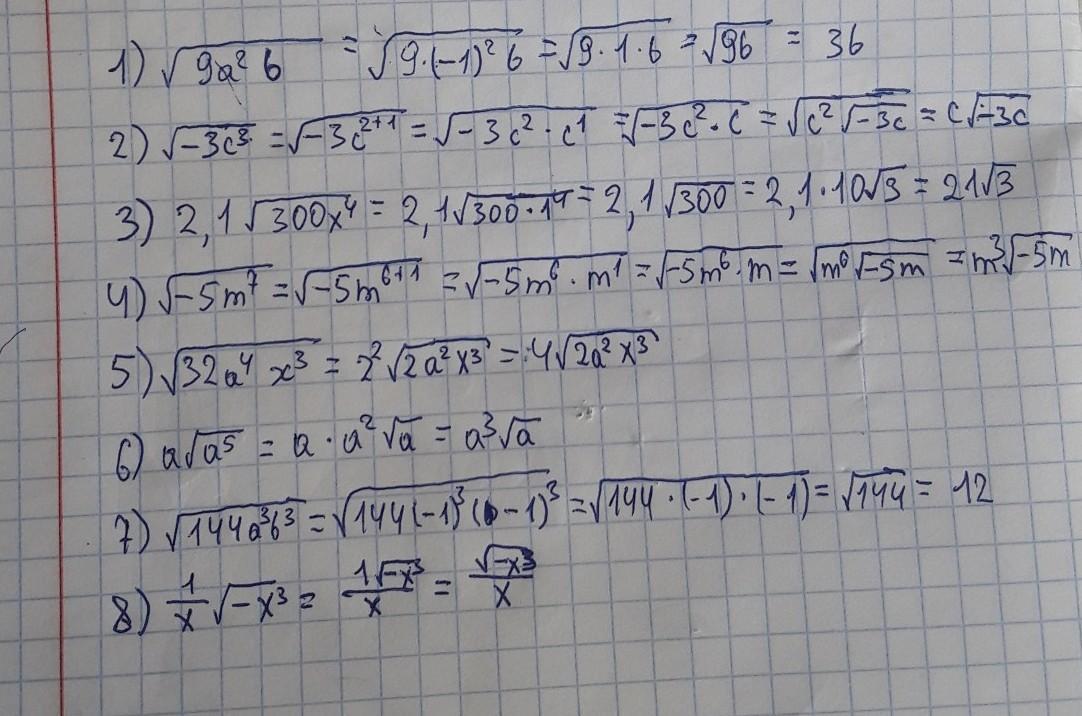 1) √9a²b = √9·(-1)²b = √9·1·b = √9b = 3b
2) √-3c³ = √-3c²⁺¹ = √-3c²·c¹ = √-3c²·c = √c²√-3c = c√-3c
3) 2,1√300x⁴ = 2,1√300·1⁴ = 2,1√300 = 2,1·10√3 = 21√3
4) √-5m⁷ = √-5m⁶⁺¹ = √-5m⁶·m¹ = √-5m⁶·m = √m⁶√-5m = m³√-5m
5) √32a⁴x³ = 2²√2a²x³ = 4√2a²x³
6) a√a⁵ = a·a²√a = a³√a
7) √144a³b³ = √144(-1)³(-1)³ = √144·(-1)·(-1) = √144 = 12
8) 1/x √-x³ = 1√-x³/x = √-x³/x